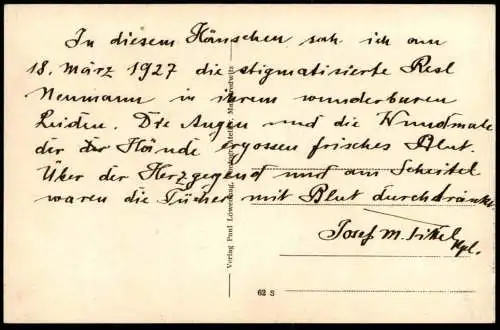 In diesem Häuschen sah ich am
18. März 1927 die stigmatisierte Resl
Neumann in ihrem wunderbaren
Leiden. Die Augen und die Wundmale
der der Hände ergossen frisches Blut.
Über der Herzgegend und am Scheitel
waren die Tücher mit Blut durchtränkt
Josef M.
Verlag Paul
62 S